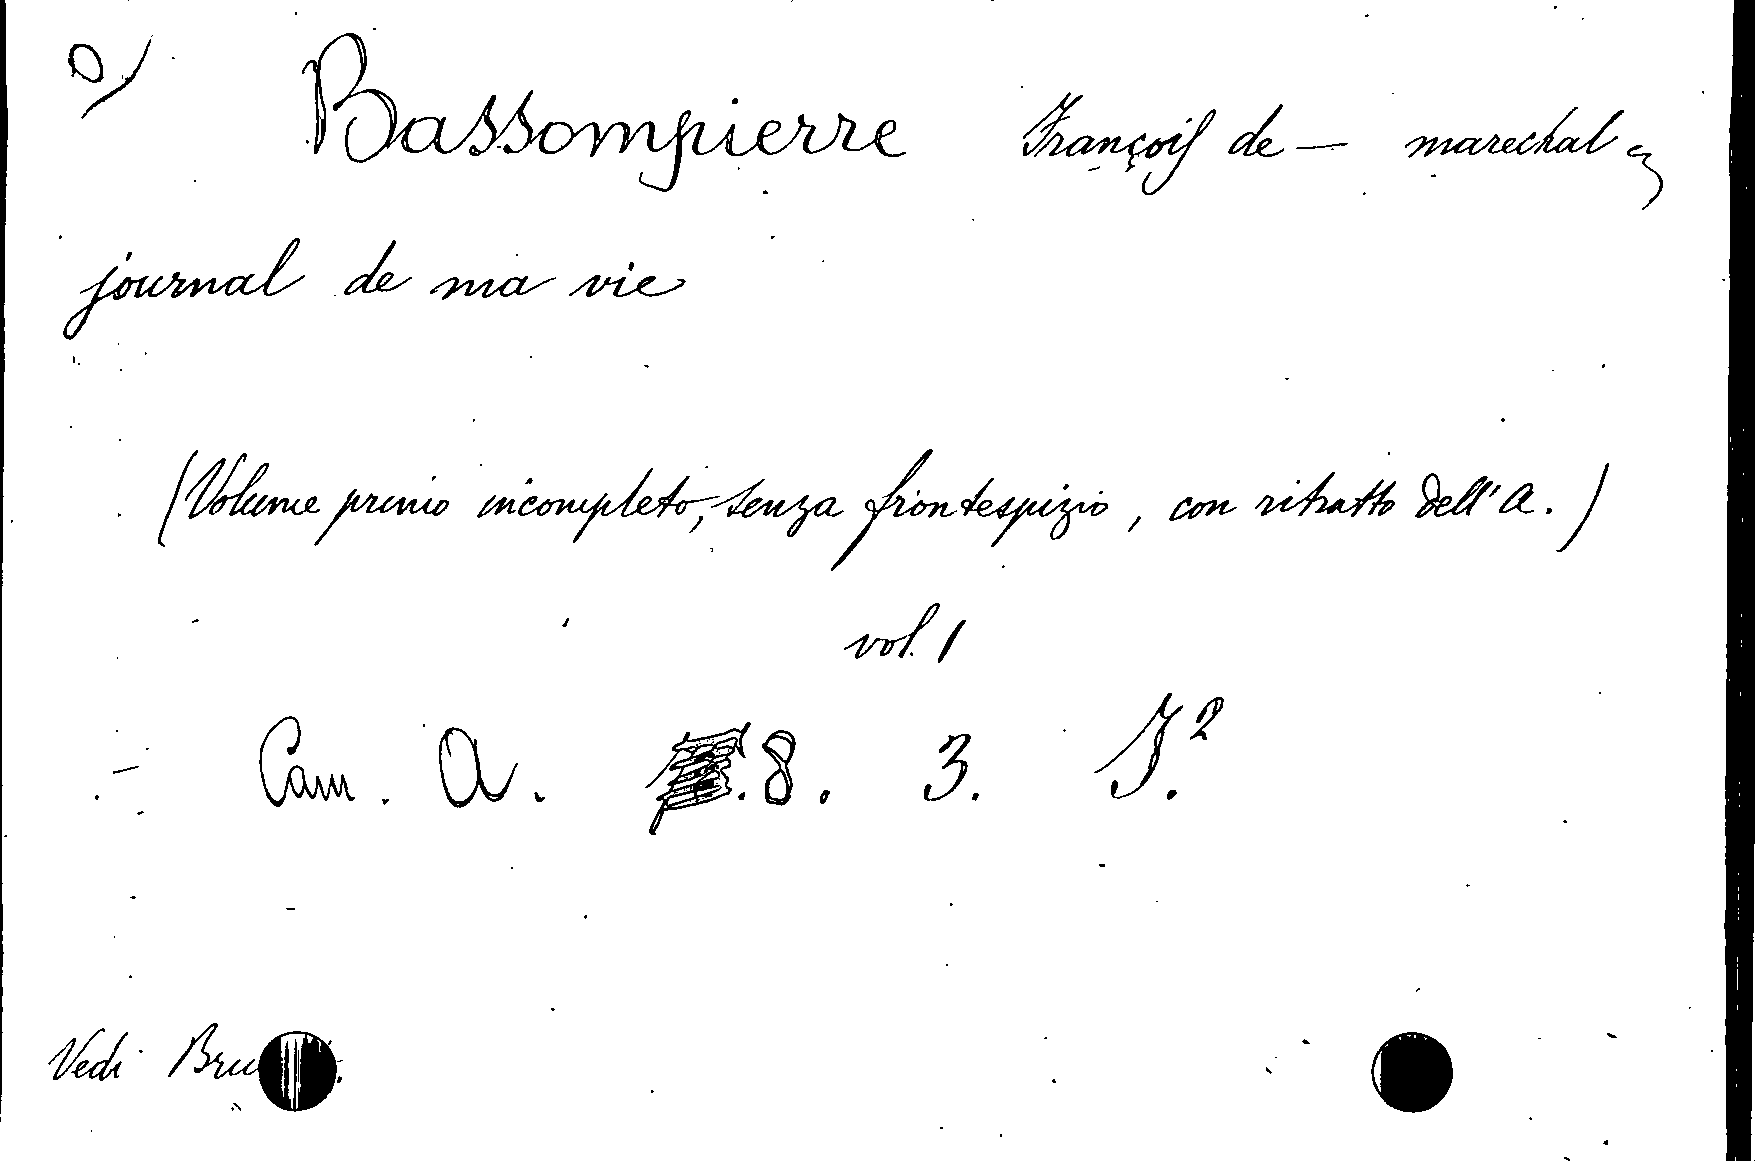 Bassompierre François de — marechal
journal de ma vie
(Volume primo incompleto, senza frontespizio, con ritratto dell'A.)
vol. 1
Cam. A. 8. 3. I.²
Vedi